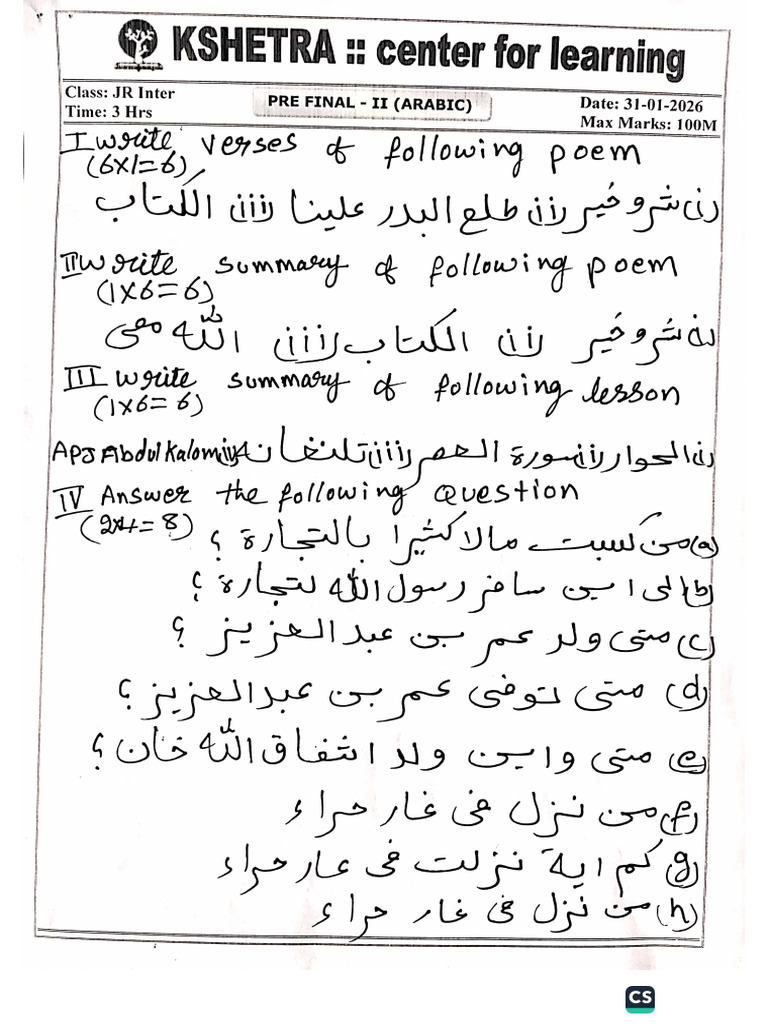 KSHETRA :: center for learning
Class: JR Inter
Time: 3 Hrs
PRE FINAL - II (ARABIC)
Date: 31-01-2026
Max Marks: 100M
I write verses of following poem
(6x1=6)
(i شر و خير (ii طلع البدر علينا (iii الكتاب
II write summary of following poem
(1x6=6)
(i شر و خير (ii الكتاب (iii الله معى
III write summary of following lesson
(1x6=6)
(i الحوار (ii سورة العصر (iii تلنغانه (iv APJ Abdul Kalam
IV Answer the following question
(2x4=8)
(a من كسبت مالا كثيرا بالتجارة ؟
(b الى اين سافر رسول الله لتجارة ؟
(c متى ولد عمر بن عبد العزيز ؟
(d متى توفى عمر بن عبد العزيز ؟
(e متى و اين ولد اشفاق الله خان ؟
(f من نزل فى غار حراء
(g كم اية نزلت فى غار حراء
(h من نزل فى غار حراء
CS